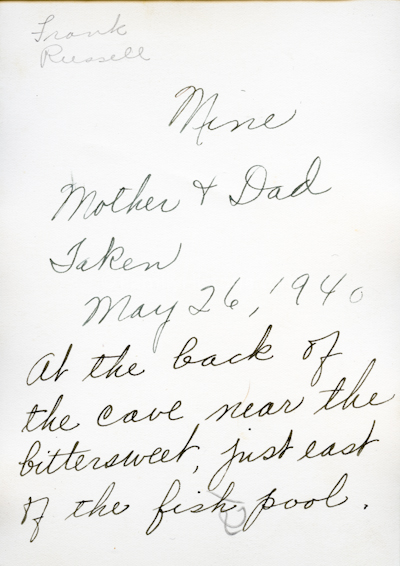 Frank
Russell
Mine
Mother & Dad
Taken
May 26, 1940
At the back of
the cave near the
bittersweet, just east
of the fish pool.